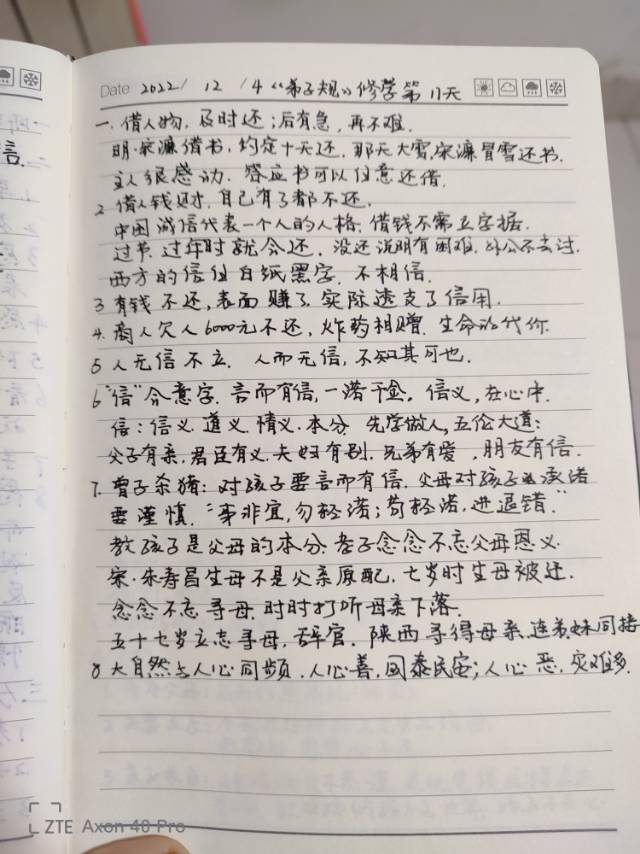 Date 2022/ 12 / 4 《弟子规》修学第11天
一. 借人物, 及时还; 后有急, 再不难.
明·宋濂借书, 约定十天还. 那天大雪, 宋濂冒雪还书.
主人很感动. 答应书可以任意还借.
2 借人钱财. 自己有了都不还.
中国诚信代表一个人的人格. 借钱不需立字据.
过节. 过年时就会还. 没还说明有困难. 外公不去讨.
西方的信任白纸黑字. 不相信.
3 有钱不还, 表面赚了. 实际透支了信用.
4. 商人欠人6000元不还, 炸药相赠. 生命的代价
5 人无信不立. 人而无信, 不知其可也.
6 "信"会意字. 言而有信, 一诺千金. 信义, 在心中.
信: 信义. 道义. 情义. 本分. 先学做人, 五伦大道:
父子有亲. 君臣有义. 夫妇有别. 兄弟有爱, 朋友有信.
7. 曾子杀猪: 对孩子要言而有信. 父母对孩子的承诺
要谨慎. "事非宜, 勿轻诺; 苟轻诺, 进退错."
教孩子是父母的本分. 孝子念念不忘父母恩义.
宋·朱寿昌生母不是父亲原配, 七岁时生母被迁.
念念不忘寻母. 时时打听母亲下落.
五十七岁立志寻母, 辞官. 陕西寻得母亲. 连弟妹同接
8 大自然与人心同频. 人心善, 国泰民安; 人心恶. 灾难多.
ZTE Axon 40 Pro